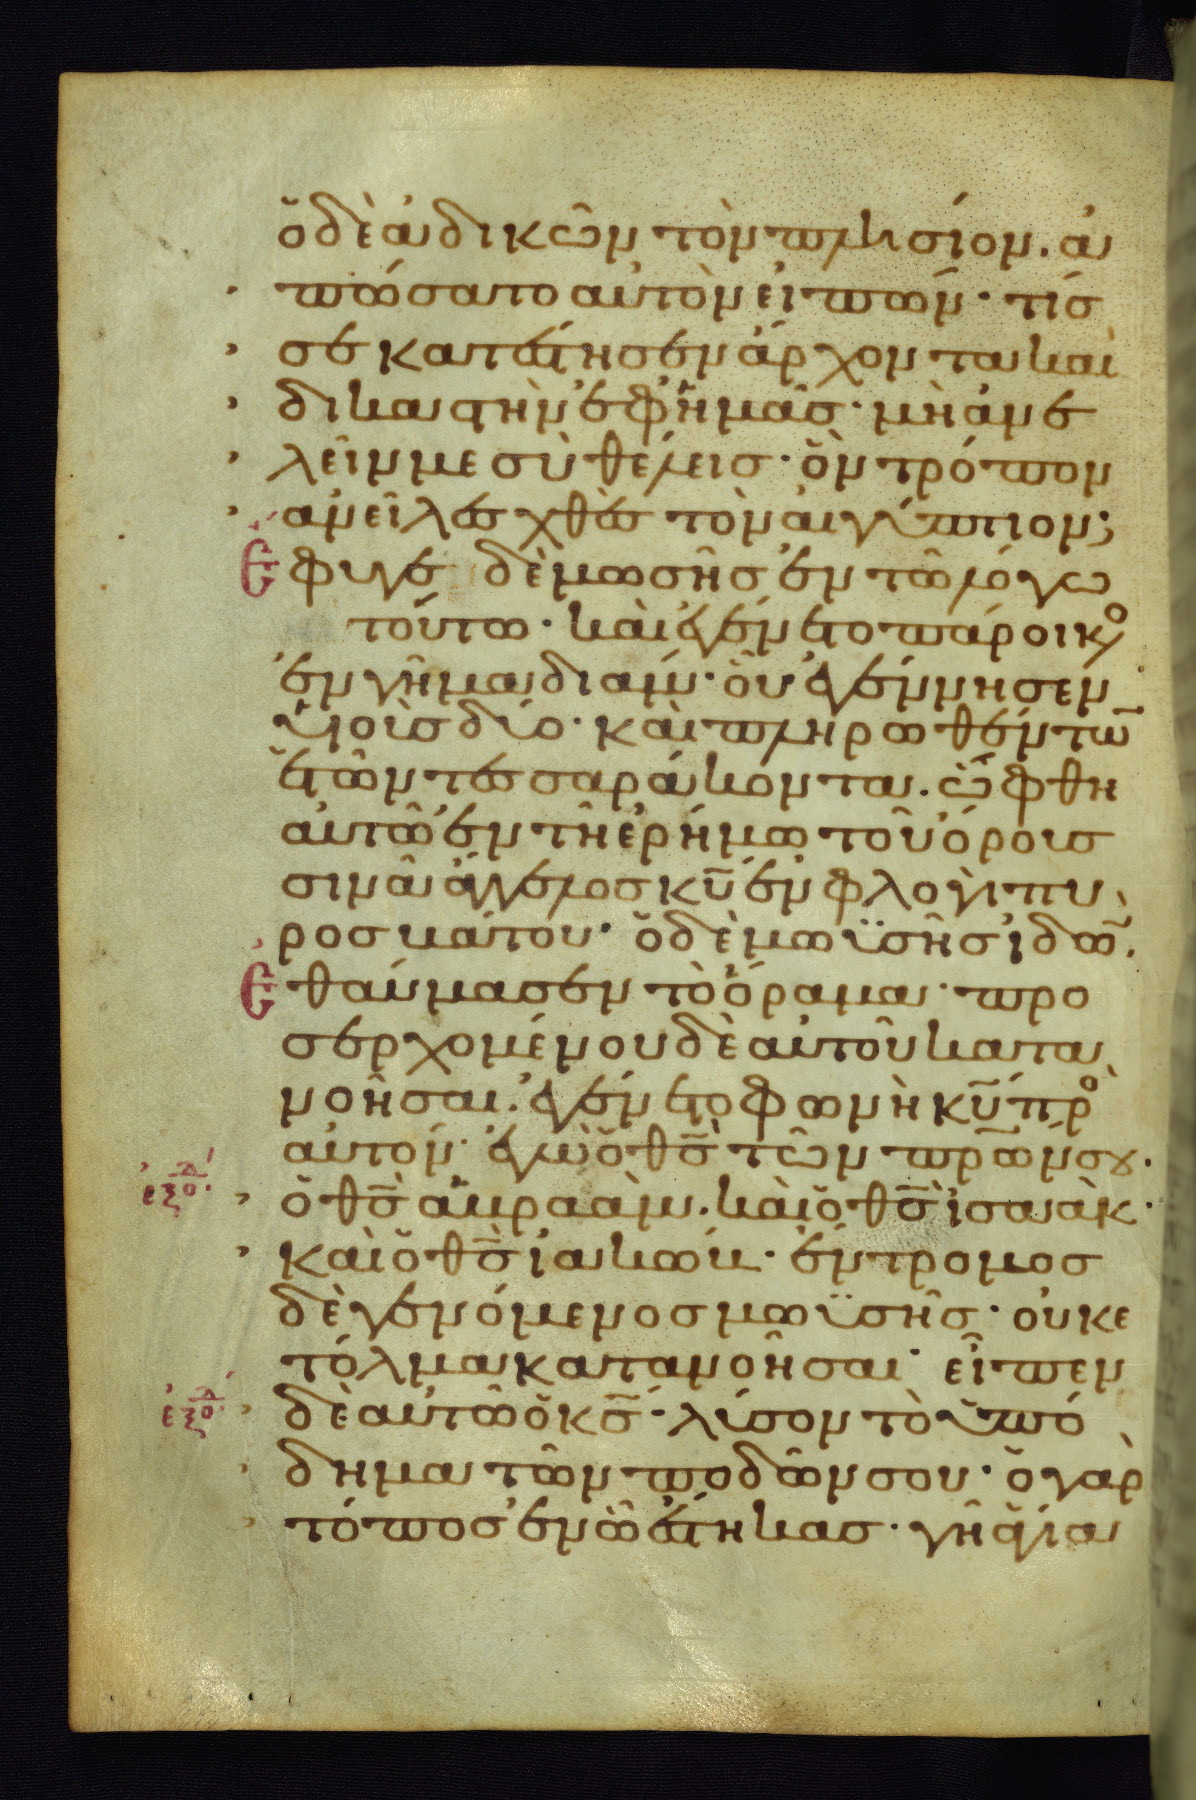 ὁ δὲ ἀδικῶν τὸν πλησίον. ἀ
πώσατο αὐτὸν εἰπών· τίς
σε κατέστησεν ἄρχοντα καὶ
δικαστὴν ἐφ' ἡμᾶς· μὴ ἀνε
λεῖν με σὺ θέλεις· ὃν τρόπον
ἀνεῖλες χθὲς τὸν αἰγύπτιον;
Ἔφυγε δὲ μωσῆς ἐν τῶ λόγω
τούτω· καὶ ἐγένετο πάροικο
ἐν γῆ μαδιάμ· οὗ ἐγέννησεν
υἱοὺς δύο· καὶ πληρωθέντω̅
ἐτῶν τεσσαράκοντα. ὤφθη
αὐτῶ ἐν τῆ ἐρήμω τοῦ ὄρους
σινᾶ ἄγγελος κ̅υ̅ ἐν φλογὶ πυ
ρὸς βάτου· ὁ δὲ μωϋσῆς ἰδω̅.
Ἐθαύμασεν τὸ ὅραμα· προ
σερχομένου δὲ αὐτοῦ κατα
νοῆσαι. ἐγένετο φωνὴ κ̅υ̅ πρὸ
αὐτόν· ἐγὼ ὁ θ̅ς̅ τῶν πρ̅ων σου.
ἐξοδ ὁ θ̅ς̅ ἀβραάμ. καὶ ὁ θ̅ς̅ ἰσαάκ·
καὶ ὁ θ̅ς̅ ἰακώβ· ἔντρομος
δὲ γενόμενος μωϋσῆς· οὐκ ἐ
τόλμα κατανοῆσαι· εἶπεν
ἐξοδ δὲ αὐτῶ ὁ κ̅ς̅· λύσον τὸ ὑπό
δημα τῶν ποδῶν σου· ὁ γὰρ
τόπος ἐν ὧ ἕστηκας· γῆ ἁγία